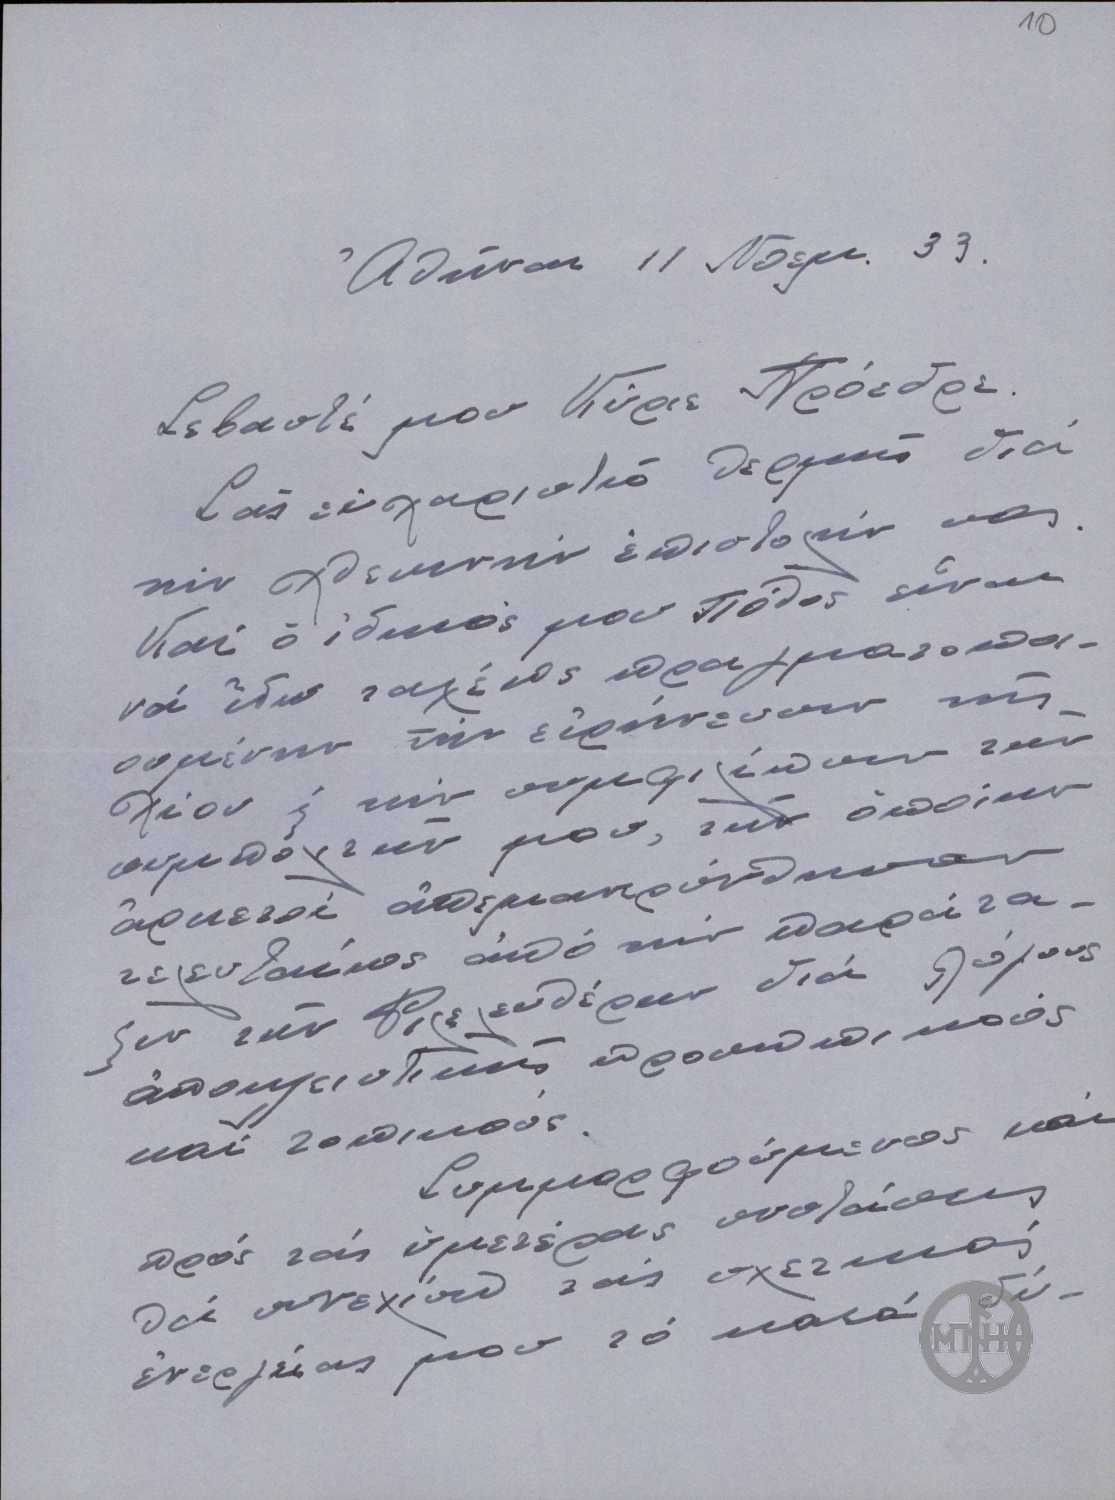 10
Ἀθῆναι 11 Νοεμ. 33.
Σεβαστέ μου Κύριε Πρόεδρε.
Σᾶς εὐχαριστῶ θερμῶς διά
τήν χθεσινήν ἐπιστολήν σας.
Καί ὁ ἰδικός μου πόθος εἶναι
νά ἴδω ταχέως πραγματοποι-
ουμένην τήν εἰρήνευσιν τῆς
Χίου ἤ τήν συμφιλίωσιν τῶν
συμπολιτῶν μου, τῶν ὁποίων
ἀρκετοί ἀπεμακρύνθησαν
τελευταίως ἀπό τήν παράτα-
ξιν τῶν Φιλελευθέρων διά λόγους
ἀποκλειστικῶς προσωπικούς
καί τοπικούς.
Συμμορφούμενος καί
πρός τάς ὑμετέρας συστάσεις
θά συνεχίσω τάς σχετικάς
ἐνεργείας μου τό κατά δύ-
ΜΠΗ